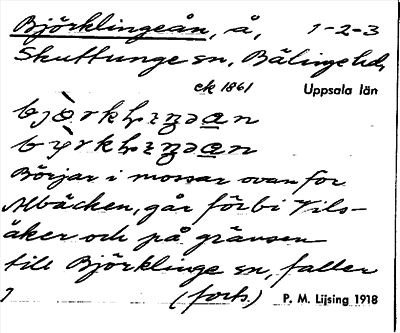 Björklingeån, å, 1-2-3
Skuttunge sn, Bälinge hd,
ek 1861 Uppsala län
Börjar i mossar ovan för
Albäcken, går förbi Vils-
åker och på gränsen
till Björklinge sn, faller
(forts.) P. M. Lijsing 1918